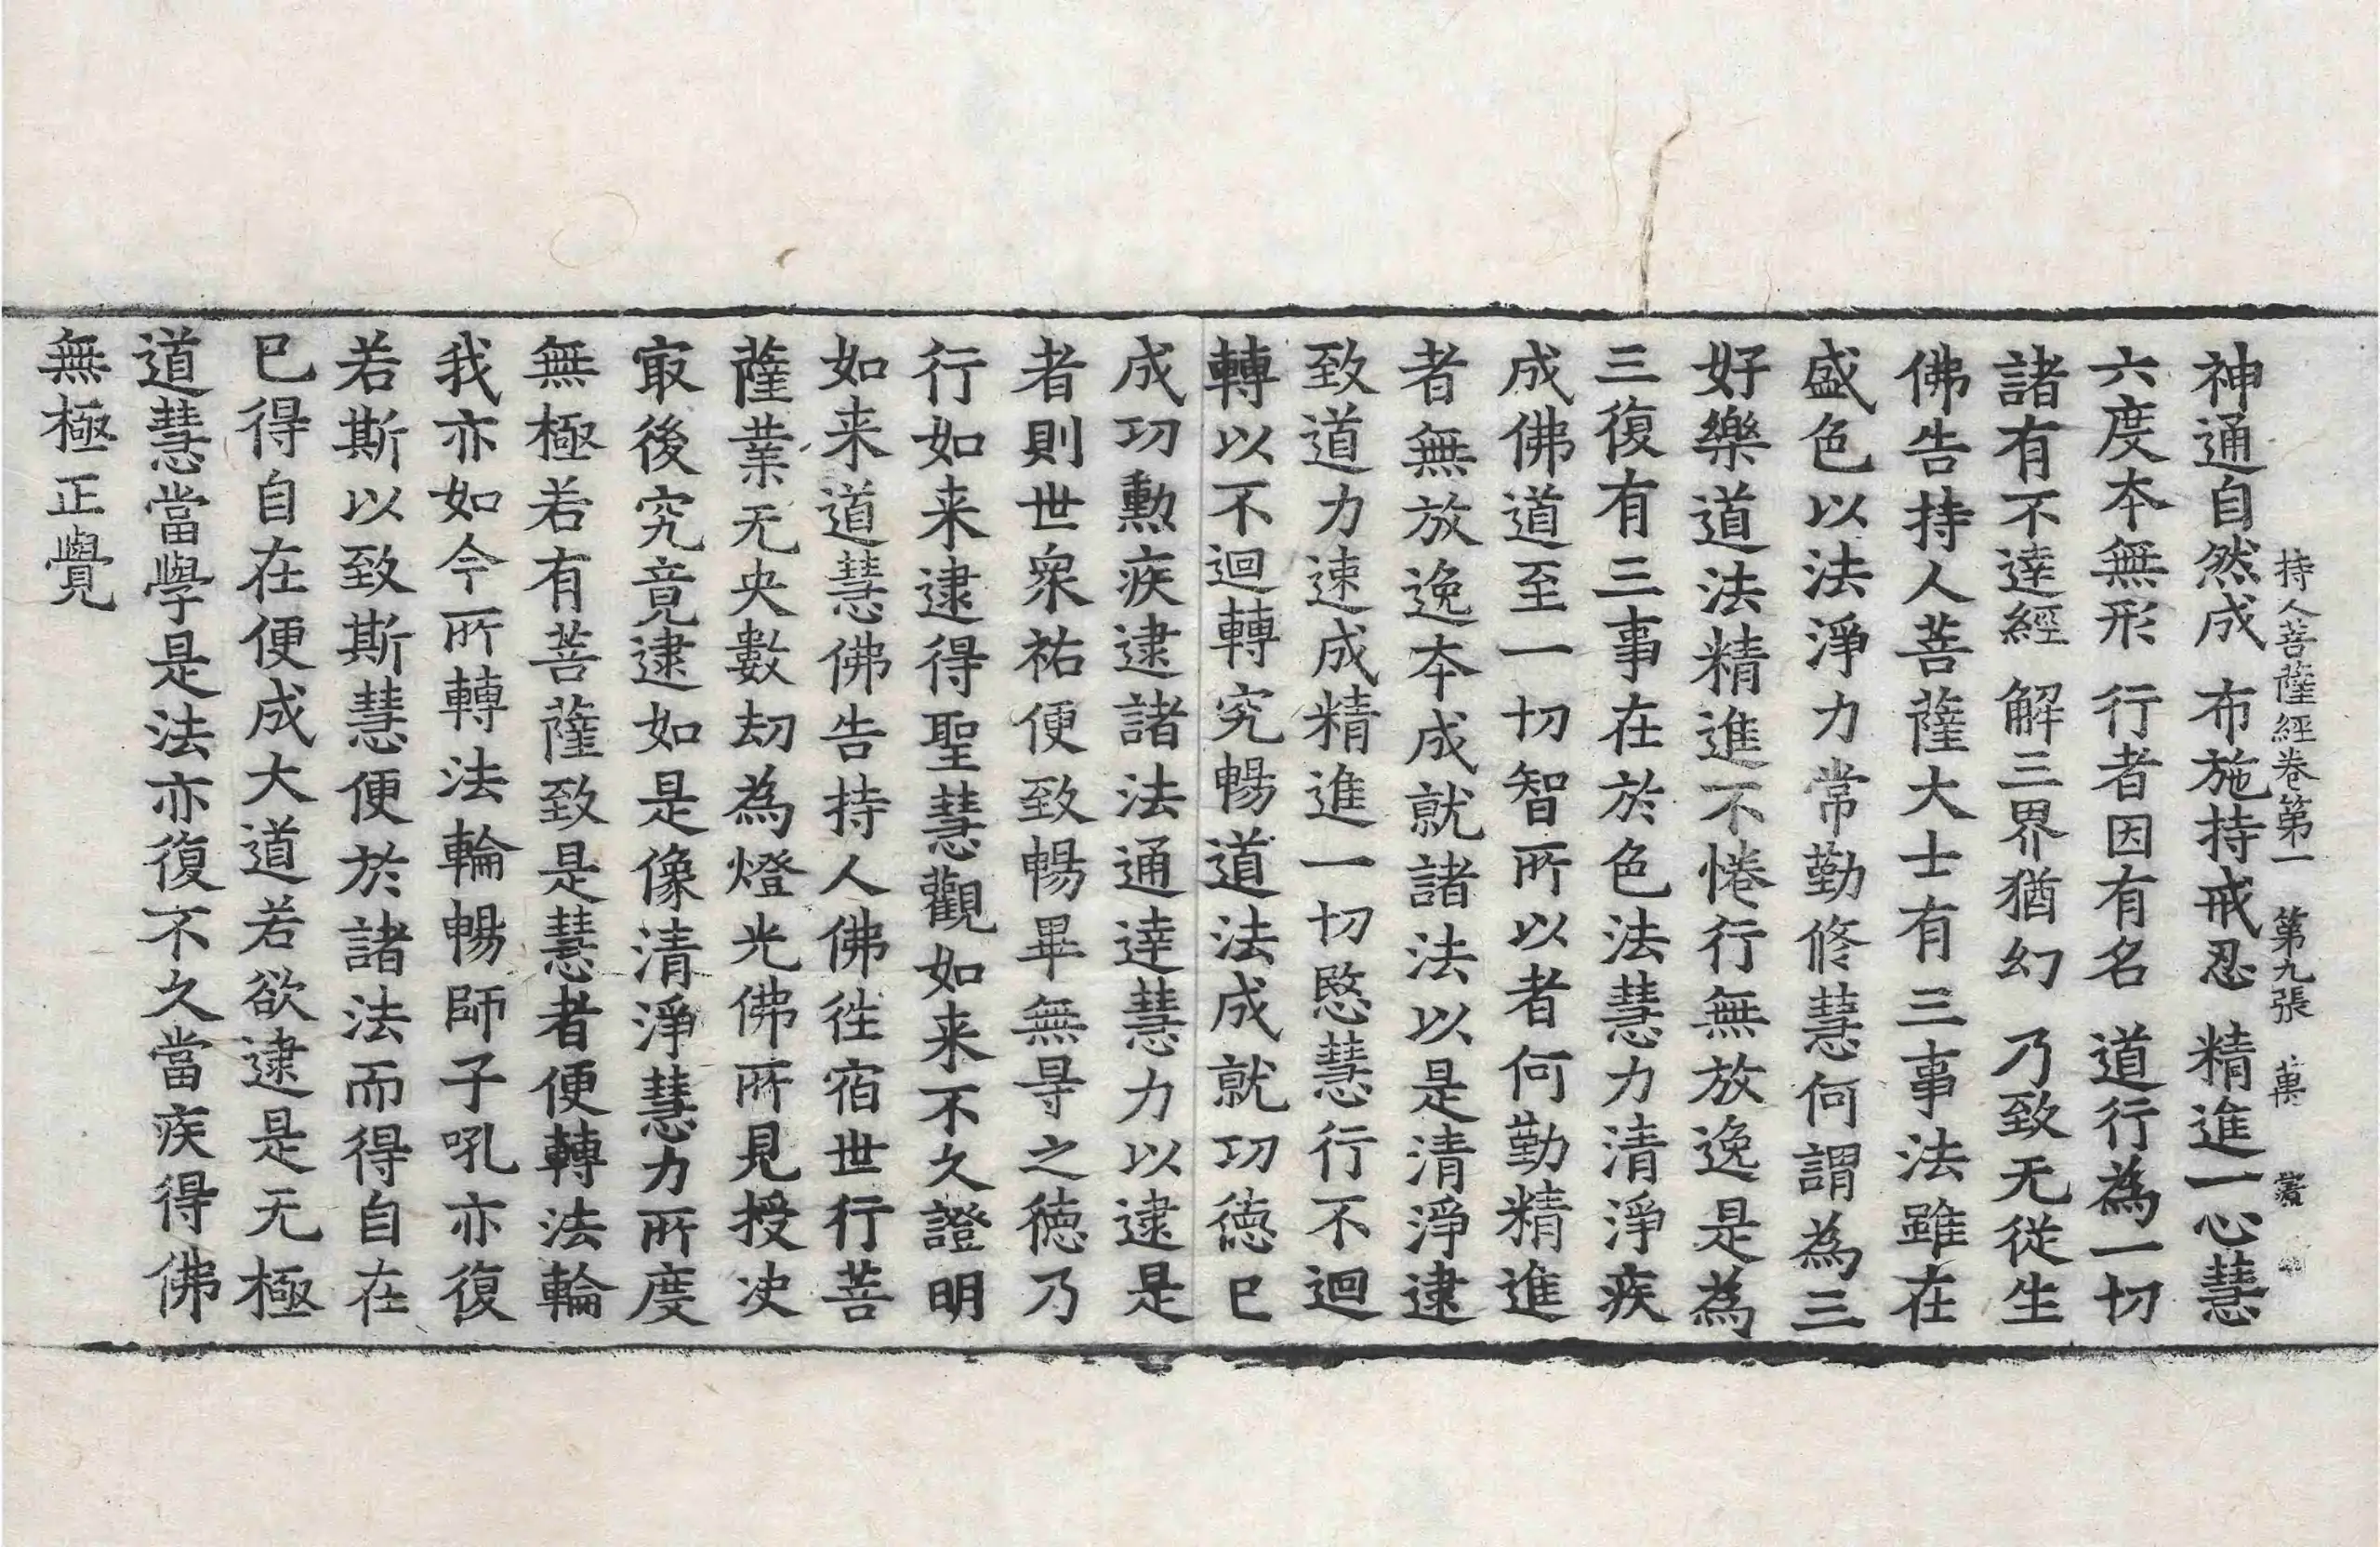 持人菩薩經卷第一 第九張 萬
神通自然成 布施持戒忍 精進一心慧
六度本無形 行者因有名 道行為一切
諸有不達經 解三界猶幻 乃致无從生
佛告持人菩薩大士有三事法雖在
盛色以法淨力常勤修慧何謂為三
好樂道法精進不惓行無放逸是為
三復有三事在於色法慧力清淨疾
成佛道至一切智所以者何勤精進
者無放逸本成就諸法以是清淨逮
致道力速成精進一切愍慧行不迴
轉以不迴轉究暢道法成就功德已
成功勳疾逮諸法通達慧力以逮是
者則世衆祐便致暢畢無㝵之德乃
行如来逮得聖慧觀如来不久證明
如来道慧佛告持人佛徃宿世行菩
薩業无央數劫為燈光佛所見授决
冣後究竟逮如是像清淨慧力所度
無極若有菩薩致是慧者便轉法輪
我亦如今所轉法輪暢師子吼亦復
若斯以致斯慧便於諸法而得自在
已得自在便成大道若欲逮是无極
道慧當學是法亦復不久當疾得佛
無極正覺